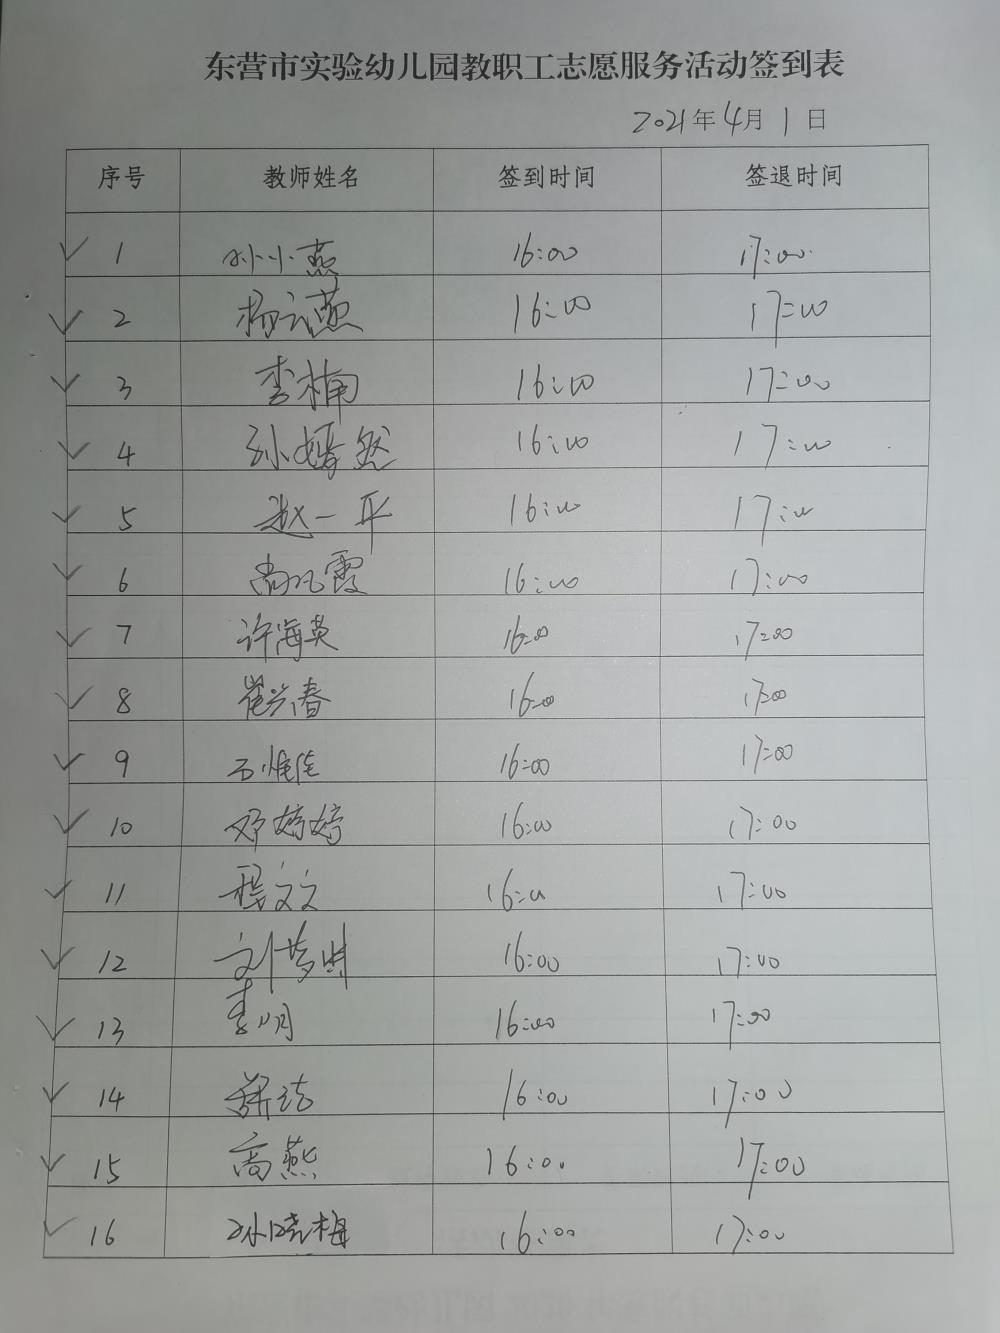 东营市实验幼儿园教职工志愿服务活动签到表
2021年4月1日
序号 教师姓名 签到时间 签退时间
1 孙小燕 16:00 17:00
2 杨云燕 16:00 17:00
3 李楠 16:00 17:00
4 孙嫣然 16:00 17:00
5 赵一平 16:00 17:00
6 尚凡霞 16:00 17:00
7 许海英 16:00 17:00
8 崔兴春 16:00 17:00
9 石惟佳 16:00 17:00
10 邓婷婷 16:00 17:00
11 程文文 16:00 17:00
12 刘梦 16:00 17:00
13 李明 16:00 17:00
14 16:00 17:00
15 高燕 16:00 17:00
16 孙晓梅 16:00 17:00